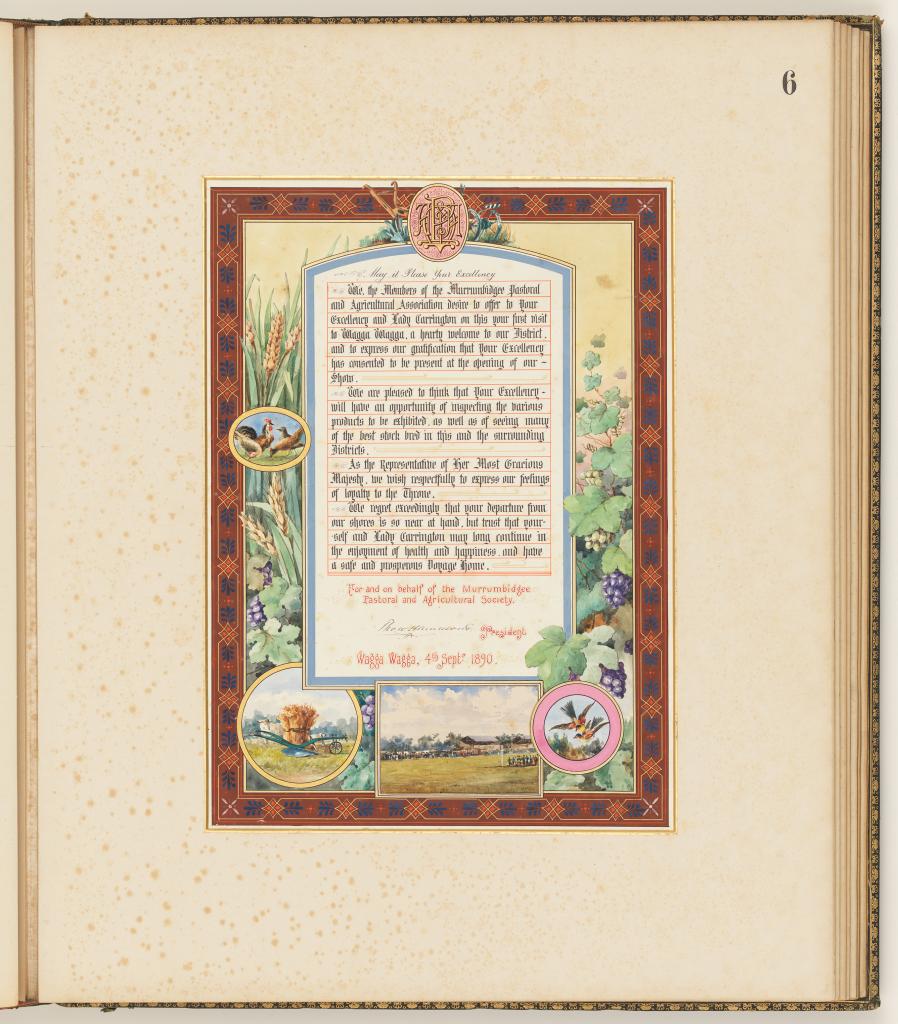 6
May it Please Your Excellency
We, the Members of the Murrumbidgee Pastoral
and Agricultural Association desire to offer to Your
Excellency and Lady Carrington on this your first visit
to Wagga Wagga, a hearty welcome to our District,
and to express our gratification that Your Excellency
has consented to be present at the opening of our -
Show.
We are pleased to think that Your Excellency -
will have an opportunity of inspecting the various
products to be exhibited, as well as of seeing many
of the best stock bred in this and the surrounding
Districts.
As the Representative of Her Most Gracious
Majesty, we wish respectfully to express our feelings
of loyalty to the Throne.
We regret exceedingly that your departure from
our shores is so near at hand, but trust that your-
self and Lady Carrington may long continue in
the enjoyment of health and happiness, and have
a safe and prosperous Voyage Home.
For and on behalf of the Murrumbidgee
Pastoral and Agricultural Society.
President
Wagga Wagga, 4th Septr 1890.